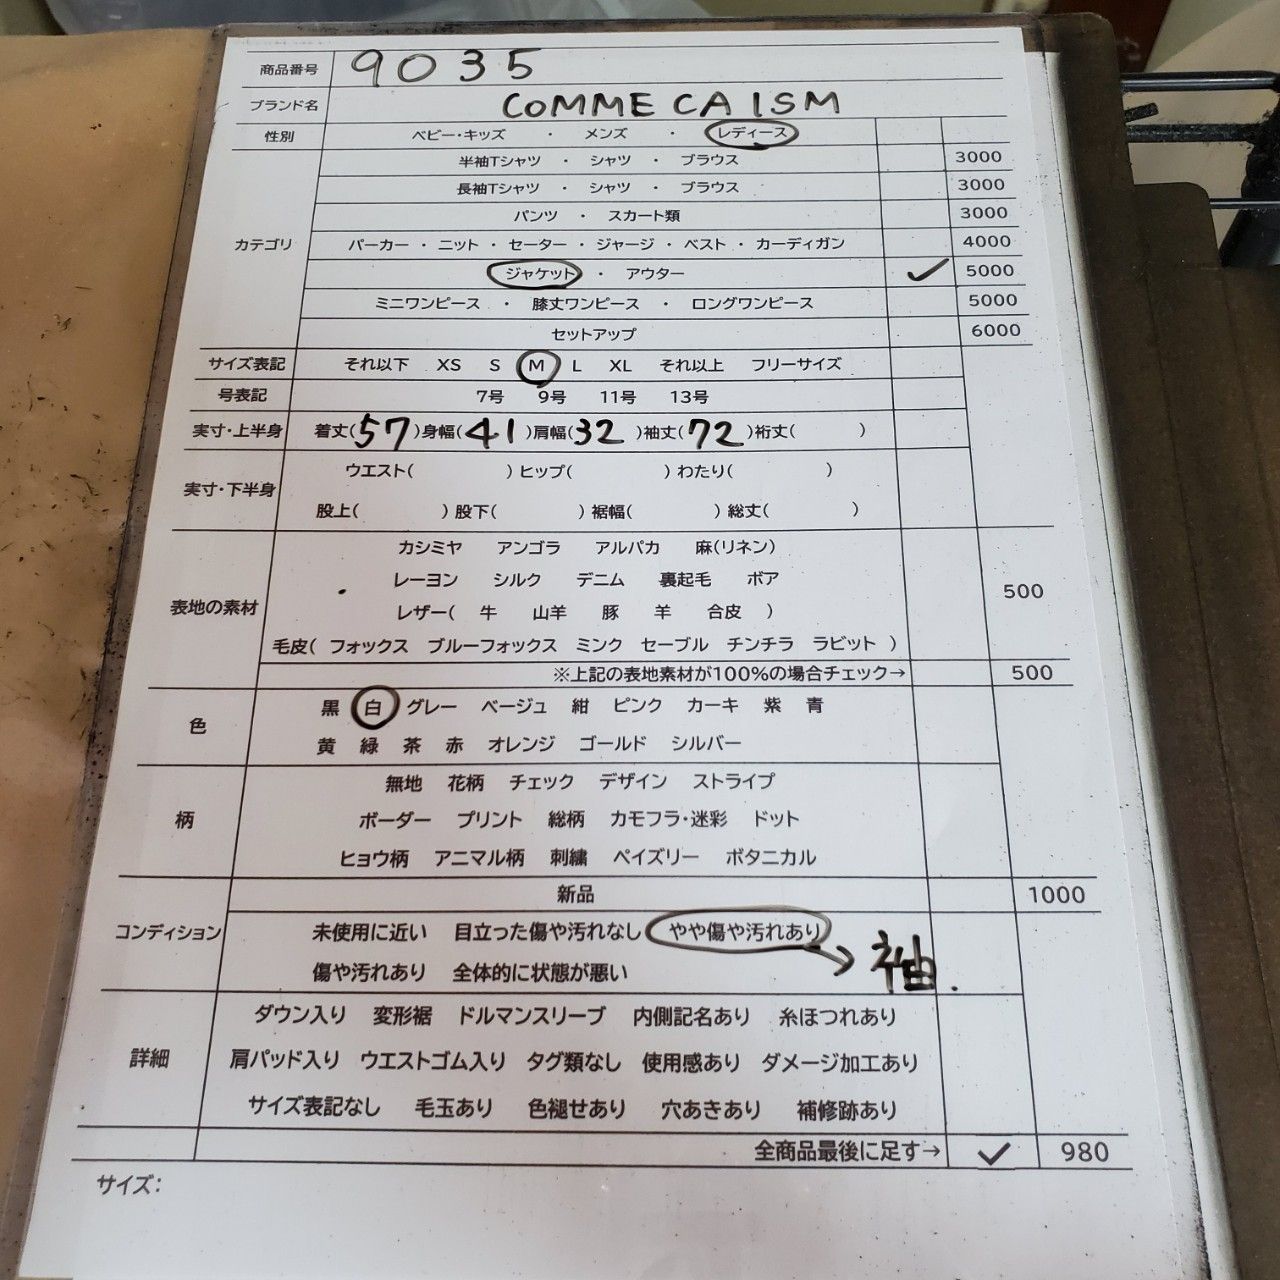 商品番号 9035
ブランド名 COMME CA ISM
性別 ベビー・キッズ ・ メンズ ・ レディース
半袖Tシャツ ・ シャツ ・ ブラウス 3000
長袖Tシャツ ・ シャツ ・ ブラウス 3000
パンツ ・ スカート類 3000
カテゴリ パーカー ・ ニット ・ セーター ・ ジャージ ・ ベスト ・ カーディガン 4000
ジャケット ・ アウター ✓ 5000
ミニワンピース ・ 膝丈ワンピース ・ ロングワンピース 5000
セットアップ 6000
サイズ表記 それ以下 XS S M L XL それ以上 フリーサイズ
号表記 7号 9号 11号 13号
実寸・上半身 着丈(57)身幅(41)肩幅(32)袖丈(72)裄丈( )
実寸・下半身 ウエスト( )ヒップ( )わたり( )
股上( )股下( )裾幅( )総丈( )
カシミヤ アンゴラ アルパカ 麻(リネン)
レーヨン シルク デニム 裏起毛 ボア 500
表地の素材 レザー( 牛 山羊 豚 羊 合皮 )
毛皮( フォックス ブルーフォックス ミンク セーブル チンチラ ラビット )
※上記の表地素材が100%の場合チェック→ 500
色 黒 白 グレー ベージュ 紺 ピンク カーキ 紫 青
黄 緑 茶 赤 オレンジ ゴールド シルバー
無地 花柄 チェック デザイン ストライプ
柄 ボーダー プリント 総柄 カモフラ・迷彩 ドット
ヒョウ柄 アニマル柄 刺繍 ペイズリー ボタニカル
新品 1000
コンディション 未使用に近い 目立った傷や汚れなし やや傷や汚れあり → 袖
傷や汚れあり 全体的に状態が悪い
ダウン入り 変形裾 ドルマンスリーブ 内側記名あり 糸ほつれあり
詳細 肩パッド入り ウエストゴム入り タグ類なし 使用感あり ダメージ加工あり
サイズ表記なし 毛玉あり 色褪せあり 穴あきあり 補修跡あり
全商品最後に足す→ ✓ 980
サイズ：